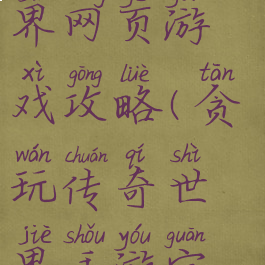 界网页游
xì gōng lüè tān
戏攻略(贪
wán chuán qí shì
玩传奇世
jiè shǒu yóu guān
界手游官